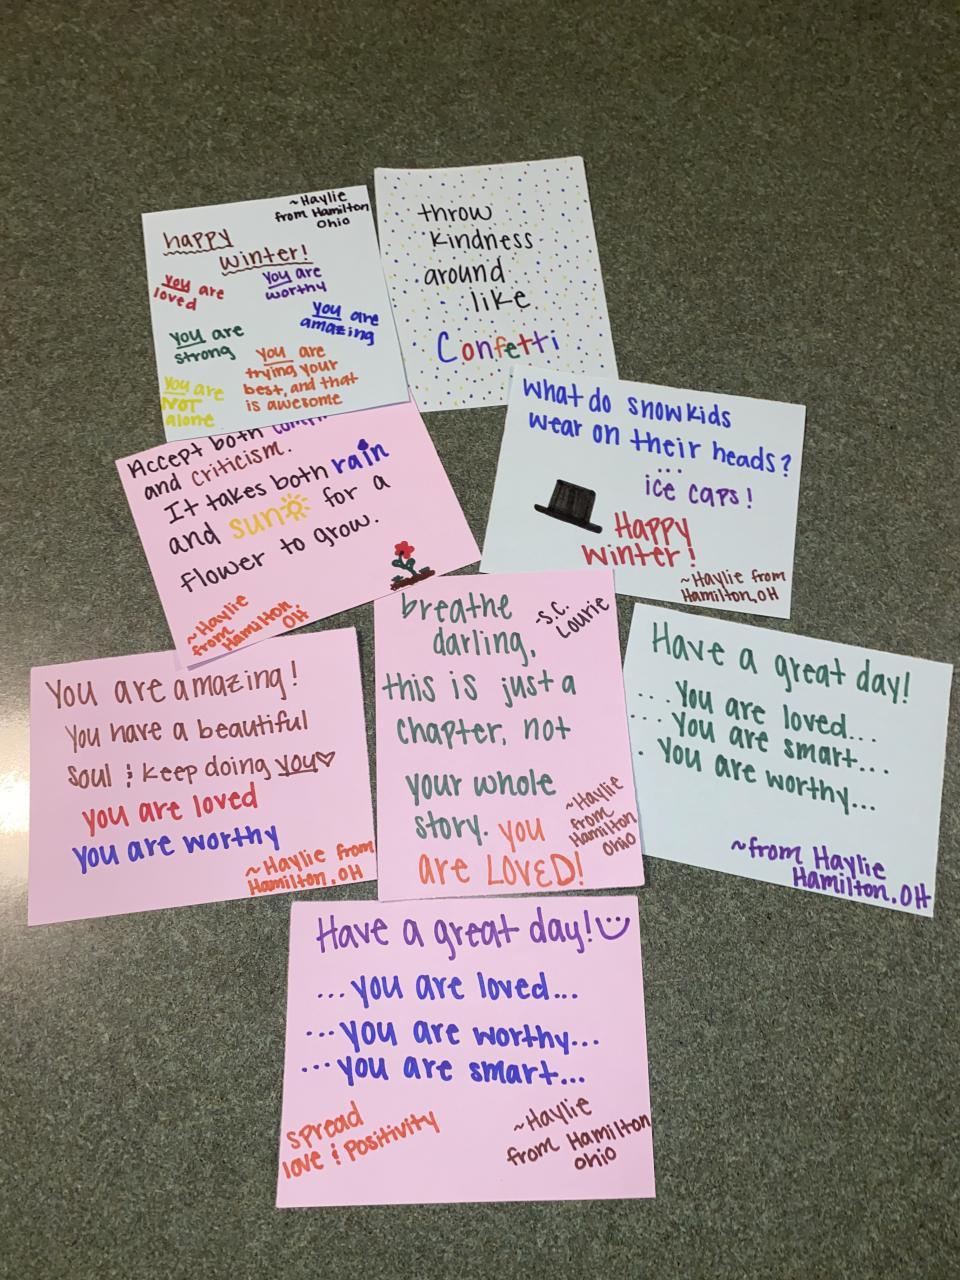 ~Haylie
from Hamilton
Ohio
happy
winter!
you are
loved
you are
worthy
you are
amazing
you are
strong
you are
trying your
best, and that
is awesome
you are
NOT
alone
throw
kindness
around
like
Confetti
Accept both
and criticism.
It takes both rain
and sun for a
flower to grow.
~Haylie
from
Hamilton,
OH
What do snowkids
wear on their heads?
...
ice caps!
Happy
winter!
~Haylie from
Hamilton, OH
You are amazing!
You have a beautiful
soul & keep doing you♡
you are loved
you are worthy
~Haylie from
Hamilton, OH
breathe
darling,
this is just a
chapter, not
your whole
story. you
are LOVED!
-S.C.
Lourie
~Haylie
from
Hamilton
Ohio
Have a great day!
...you are loved...
...you are smart...
. you are worthy...
~from Haylie
Hamilton, OH
Have a great day!
...you are loved...
...you are worthy...
...you are smart...
spread
love & positivity
~Haylie
from Hamilton
ohio